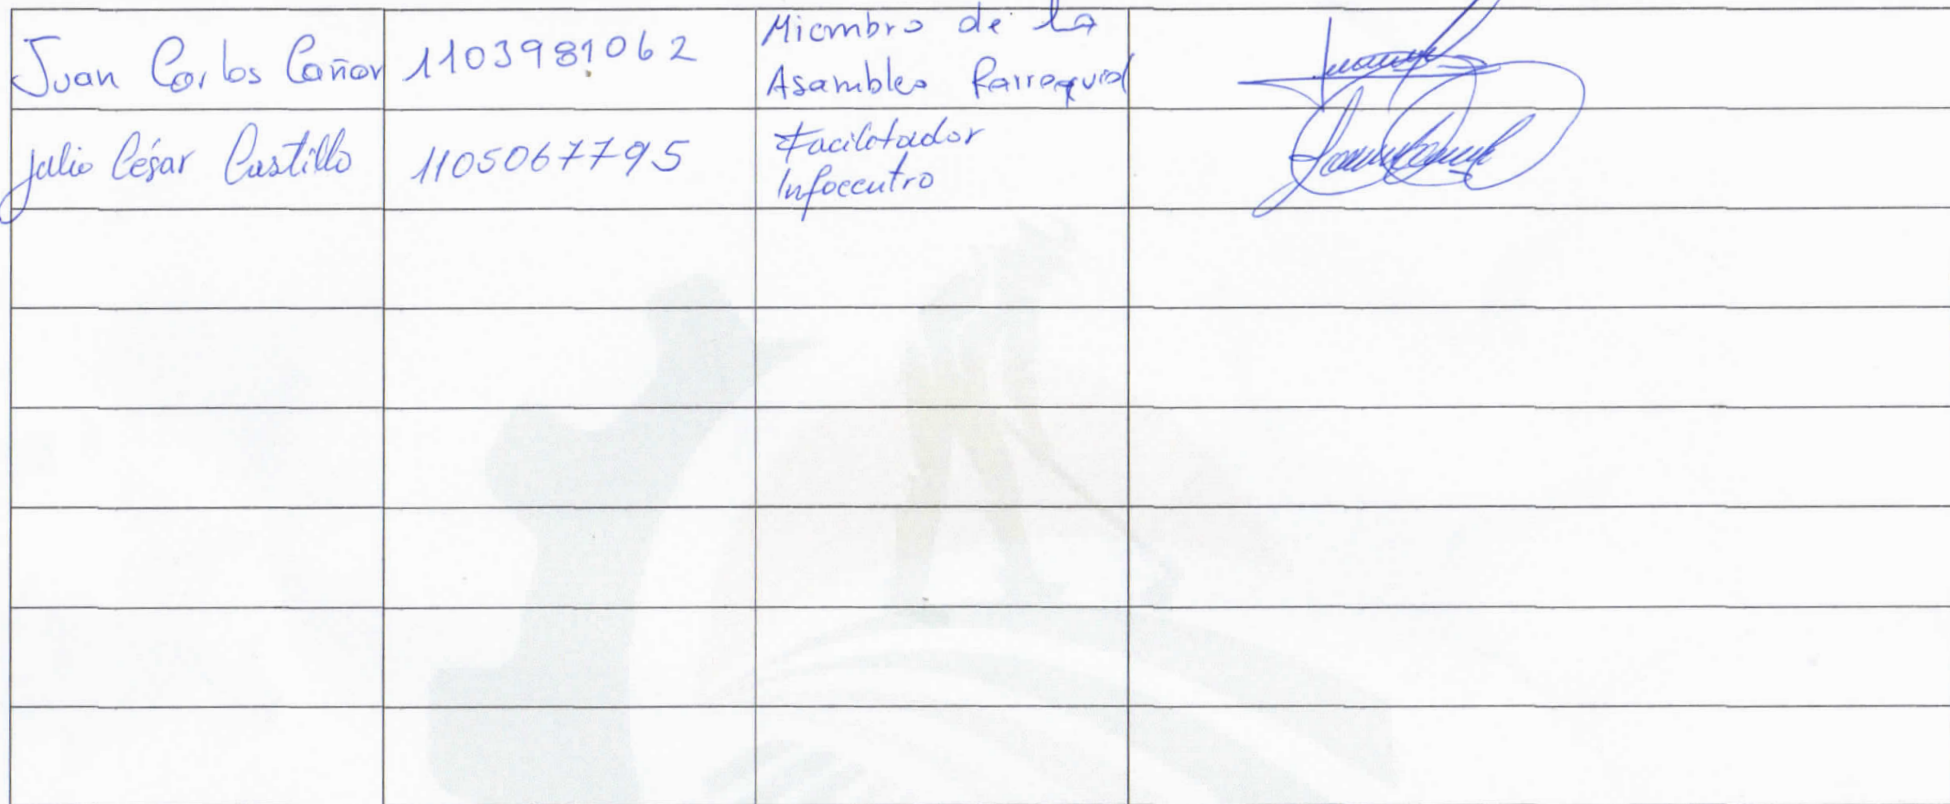 Juan Carlos Cañar 1103981062 Miembro de la
Asamblea Parroquial
Julio César Castillo 1105067795 Facilitador
Infocentro